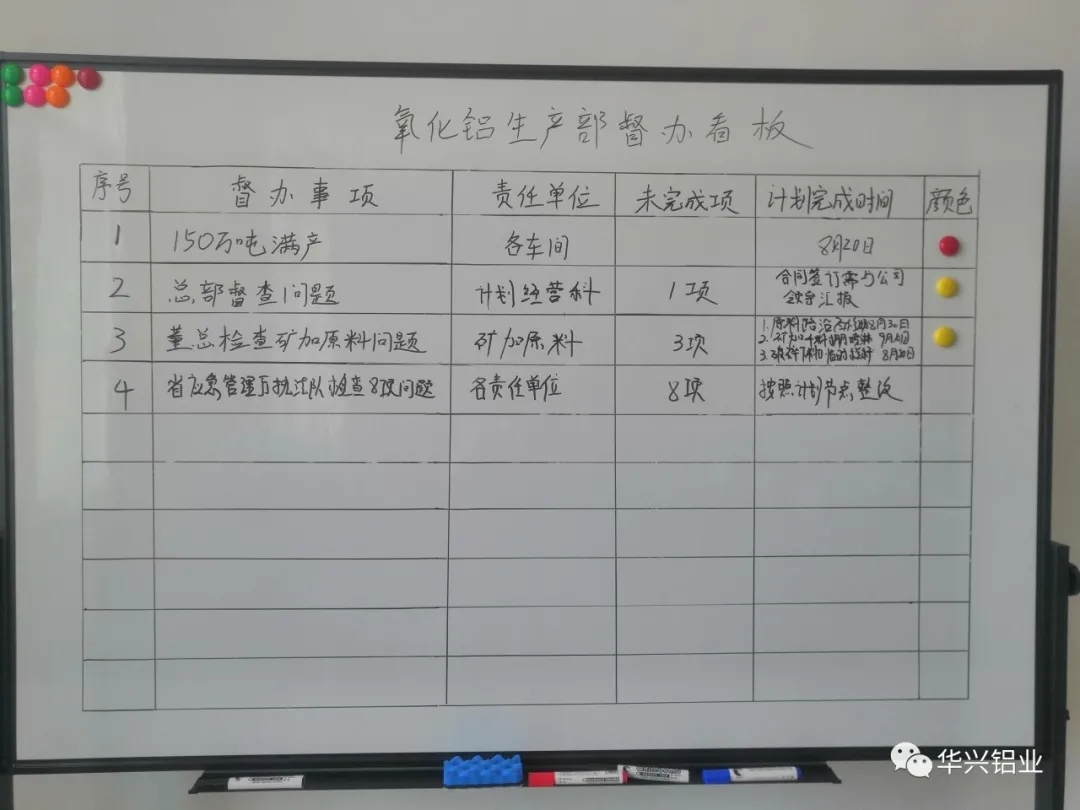 氧化铝生产部督办看板
序号 督办事项 责任单位 未完成项 计划完成时间 颜色
1 150万吨满产 各车间 8月20日
2 总部督查1问题 计划经营科 1项 合同签订需与公司
领导汇报
3 董总检查矿加原料问题 矿加原料 3项 1.原料 8月30日
2.矿加 9月
3. 8月
4 省应急管理厅执法队检查8项问题 各责任单位 8项 按照计划节点整改
华兴铝业